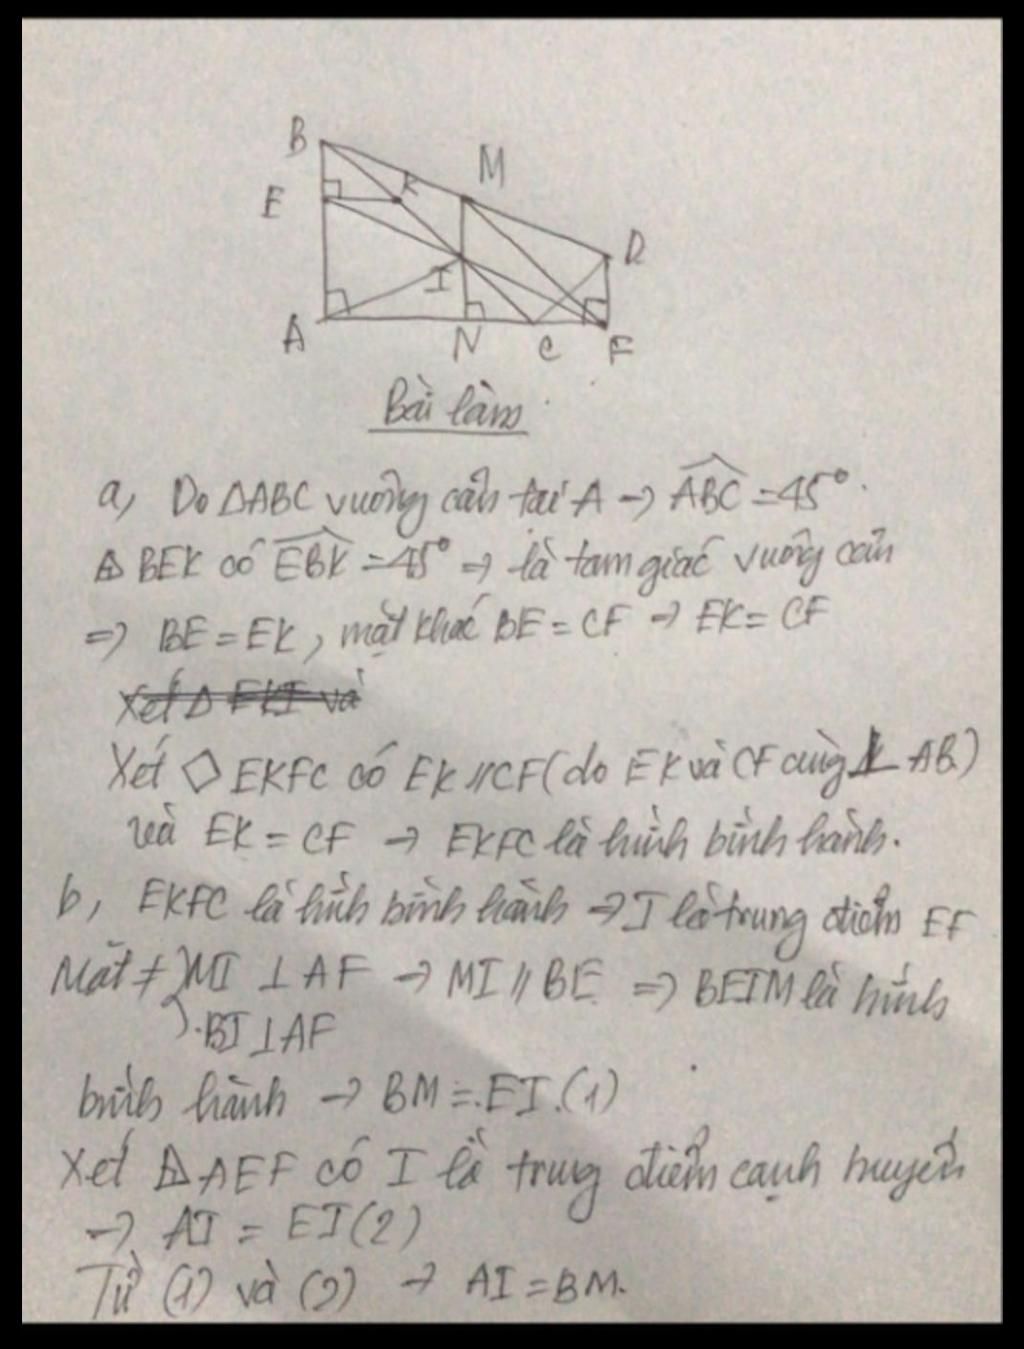 B
M
E
K
D
I
A
N
C
F
Bài làm
a, Do ΔABC vuông cân tại A → ABC = 45°.
Δ BEK có EBK = 45° => là tam giác vuông cân
=> BE = EK, mặt khác BE = CF → EK = CF
Xét Δ EKI và
Xét ◇ EKFC có EK // CF (do EK và CF cùng ⊥ AB)
và EK = CF → EKFC là hình bình hành.
b, EKFC là hình bình hành → I là trung điểm EF
Mặt ≠ } MI ⊥ AF → MI // BE => BEIM là hình
BI ⊥ AF
bình hành → BM = EI. (1)
Xét ΔAEF có I là trung điểm cạnh huyền
→ AI = EI (2)
Từ (1) và (2) → AI = BM.